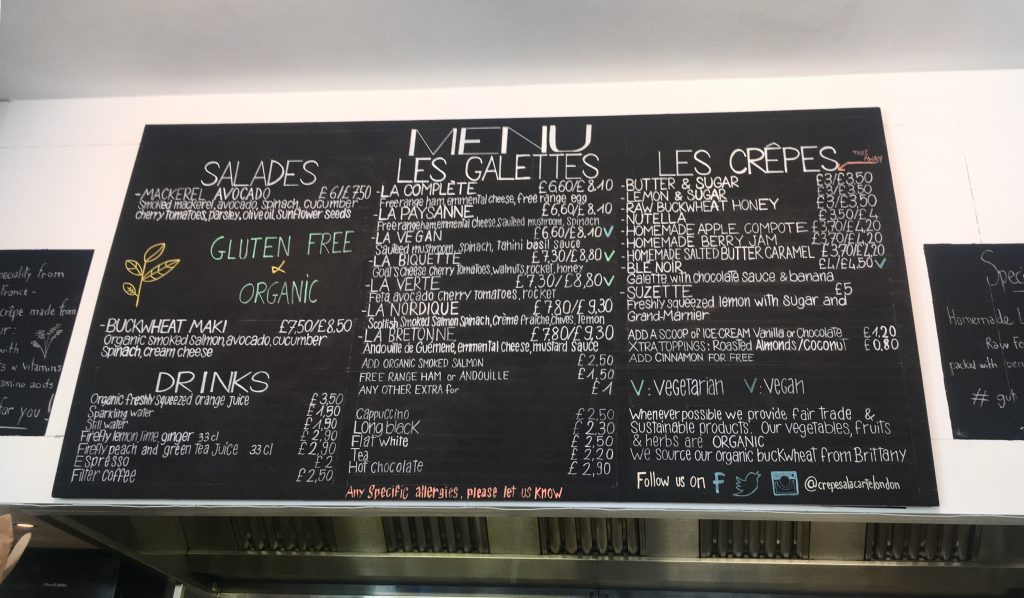 MENU
SALADES
-MACKEREL AVOCADO £6/£7,50
Smoked mackerel, avocado, spinach, cucumber
cherry tomatoes, parsley, olive oil, sunflower seeds
GLUTEN FREE
&
ORGANIC
-BUCKWHEAT MAKI £7,50/£8,50
Organic smoked salmon, avocado, cucumber
Spinach, cream cheese
DRINKS
Organic freshly squeezed orange juice £3,50
Sparkling water £1,90
Still water £1,90
Firefly lemon, lime ginger 33cl £2,90
Firefly peach and green tea juice 33cl £2,90
Espresso £2
Filter coffee £2,50
LES GALETTES
-LA COMPLÈTE £6,60/£8,10
Free range ham, emmental cheese, free range egg
-LA PAYSANNE £6,60/£8,10
Free range ham, emmental cheese, sauteed mushroom, spinach
-LA VEGAN £6,60/£8,10 V
Sauteed mushroom, spinach, tahini basil sauce
-LA BIQUETTE £7,30/£8,80 V
Goat's cheese cherry tomatoes, walnuts, rocket, honey
-LA VERTE £7,30/£8,80 V
Feta avocado cherry tomatoes, rocket
-LA NORDIQUE £7,80/£9,30
Scottish Smoked Salmon Spinach, Crème fraîche, chives, lemon
-LA BRETONNE £7,80/£9,30
Andouille de Guémené, emmental cheese, mustard sauce
ADD ORGANIC SMOKED SALMON £2,50
FREE RANGE HAM or ANDOUILLE £1,50
ANY OTHER EXTRA for £1
Cappuccino £2,50
Long black £2,30
Flat white £2,50
Tea £2,20
Hot chocolate £2,90
Any Specific allergies, please let us know
LES CRÊPES
TAKE AWAY
-BUTTER & SUGAR £3/£3,50
-LEMON & SUGAR £3/£3,50
-RAW BUCKWHEAT HONEY £3/£3,50
-NUTELLA £3,50/£4
-HOMEMADE APPLE COMPOTE £3,70/£4,20
-HOMEMADE BERRY JAM
-HOMEMADE SALTED BUTTER CARAMEL £3,70/£4,20
-BLE NOIR £4/£4,50 V
Galette with chocolate sauce & banana
-SUZETTE £5
Freshly squeezed lemon with sugar and
Grand-Marnier
ADD A SCOOP of ICE-CREAM Vanilla or Chocolate £1,20
XTRA TOPPINGS: Roasted Almonds/Coconut £0,80
ADD CINNAMON FOR FREE
V: Vegetarian V: Vegan
Whenever possible we provide fair trade &
sustainable products. Our vegetables, fruits
& herbs are ORGANIC
We source our organic buckwheat from Brittany
Follow us on f @crepesalacartelondon
eciality from
France -
crêpe made from
ur:
with
s & vitamins
amino acids
for you !
Speci
Homemade l
Raw Fe
packed with ben
# gut